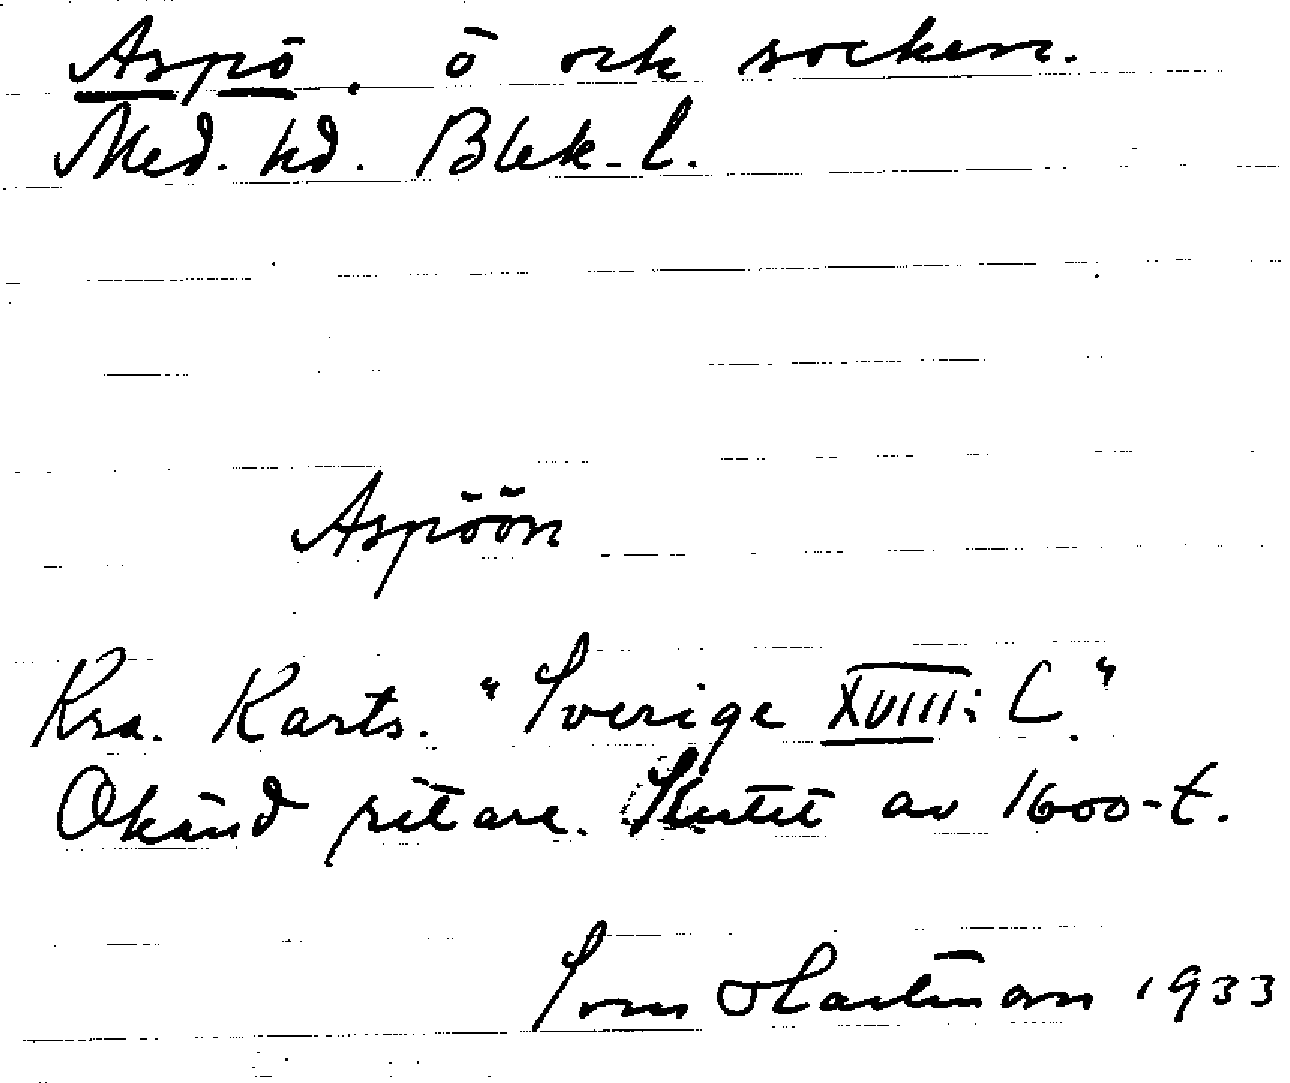 Aspö, ö och socken.
Med. hd. Blek. l.
Aspöön
Kra. Karts. "Sverige XVIII: C."
Okänd ritare. Slutet av 1600-t.
Sven Hartman 1933